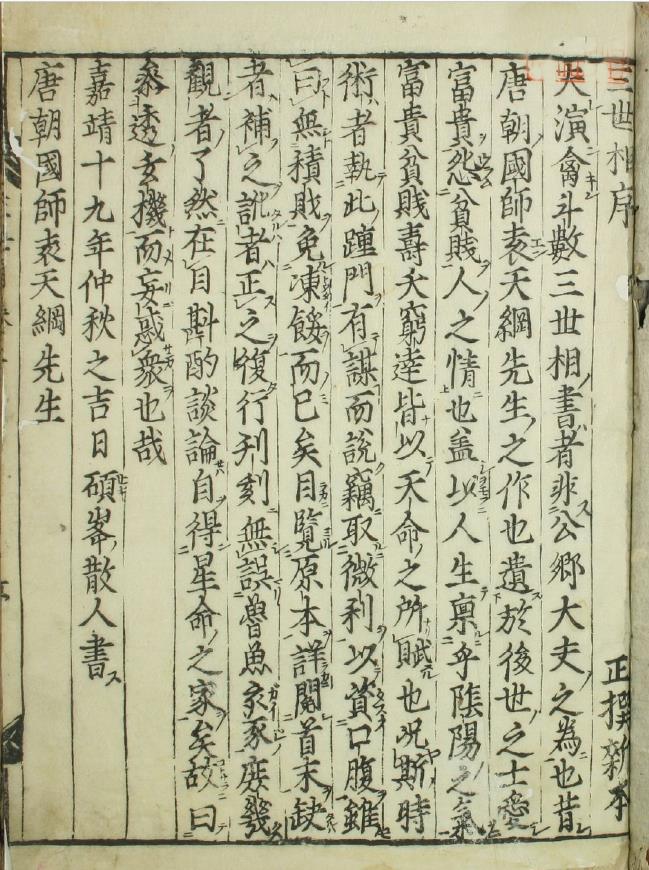 三世相序
正撰新本
夫演禽斗數三世相書者非公卿大夫之為也昔
唐朝國師袁天綱先生之作也遺於後世之士愛
富貴怨貧賤人之情也盖以人生禀乎陰陽之氣
富貴貧賤壽夭窮達皆以天命之所賦也况斯時
術者執此踵門有謀而說竊取微利以資口腹雖
曰無積貯免凍餒而已矣目覽原本詳閱首末缺
者補之訛者正之復行刋刻無誤魯魚亥豕庶幾
觀者了然在目斟酌談論自得星命之家矣故曰
叅透玄機而妄惑衆也哉
嘉靖十九年仲秋之吉日碩峯散人書
唐朝國師袁天綱先生